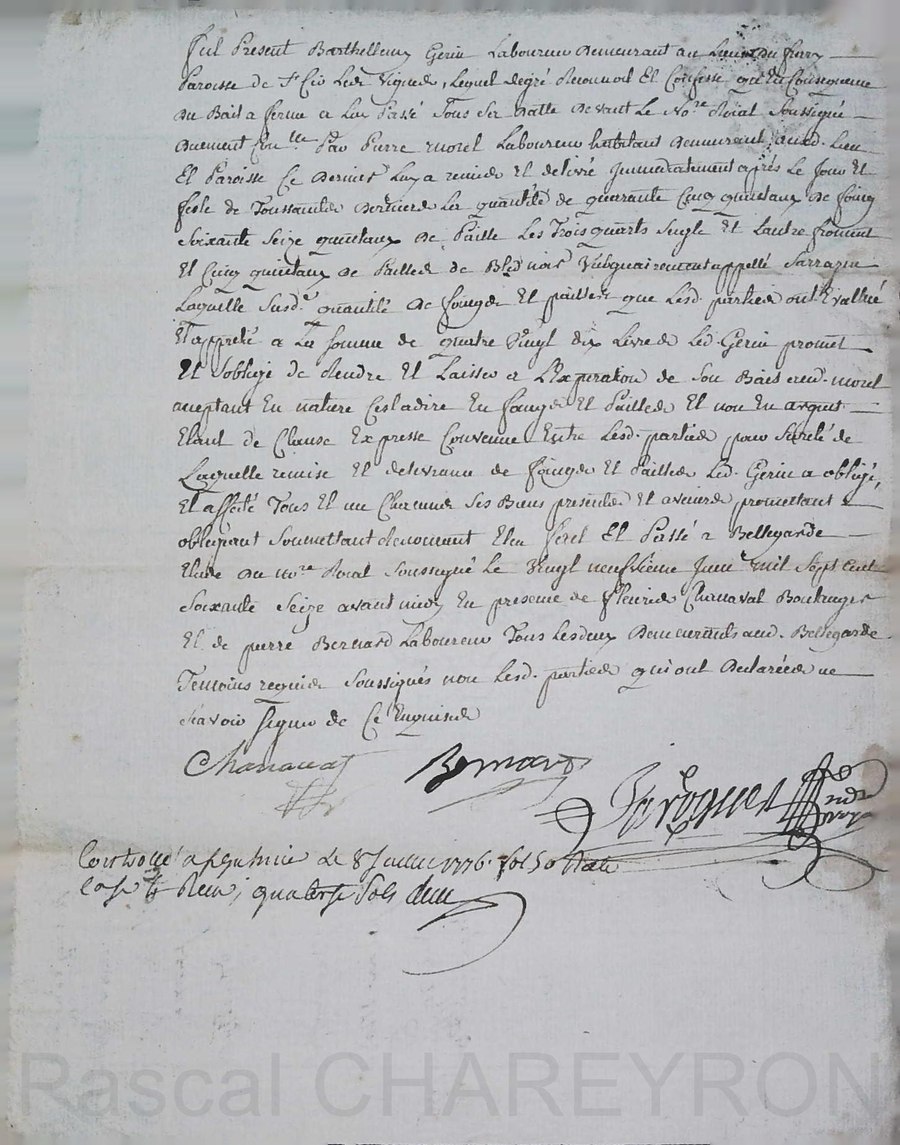 fut Present Barthellemy Gerin Laboureur demeurant au Lieu du
Paroisse de St Cir Les Vignes, Lequel de gré Reconnoit Et Confesse qu'en Consequence
du Bail a ferme a Luy Passé Sous Ser datte devant Le Nore Roial Soussigné
Par Pierre morel Laboureur habitant demeurant aud. Lieu
Et Paroisse Ce dernier Luy a remis Et delivré Immediatement après Le Jour Et
feste de Toussaintes derniere La quantité de quarante Cinq quintaux de foing
Soixante Seize quintaux de Paille Les Trois quarts Seigle Et Lautre froment
Et Cinq quintaux de Pailles de Bled noir Vulguairement appellé Sarrazin
Laquelle Susd.e quantité de foinge Et paillers que Lesd. parties ont Evallué
Et appretié a La Somme de quatre Vingt dix Livres Led. Gerin promet
Et Soblige de Rendre Et Laisser a L'Expiration de Son Bail aud. morel
aceptant En nature Cestadire En foinge Et Pailles Et non En argent
Etant de Clause Expresse Convenue Entre Lesd. parties pour Sureté de
Laquelle remise Et delivrance de foinge Et Pailles Led. Gerin a obligé,
Et affecté Tous Et un Chacuns Ses Biens presents Et avenirs promettant
obligeant Soumettant Renonceant Et Passé a Bellegarde
Etude du nore Roial Soussigné Le Vingt neufvieme Juin mil Sept Cent
Soixante Seize avant midy En presence de fleurie Chanavat Boulanger
Et de pierre Bernard Laboureur Tous Lesdeux demeurants aud. Bellegarde
Temoins requis Soussignés non Lesd. parties qui ont declarées ne
Scavoir Signer de Ce Enquises
Chanavat
Bernard
Controllé a le 8 Juillet 1776 fol 50
Case Reçu quatorse Sols
Rascal CHAREYRON